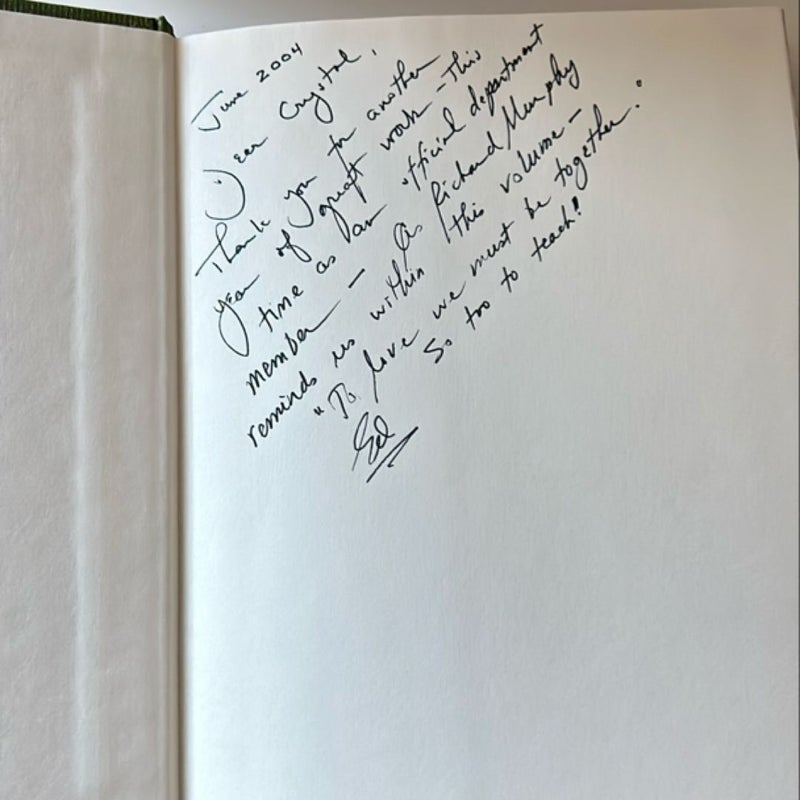 June 2004
Dear Crystal,
Thank you for another
year of great work - This
time as an official department
member - As Richard Murphy
reminds us within this volume -
"To love we must be together."
So too to teach!
Ed